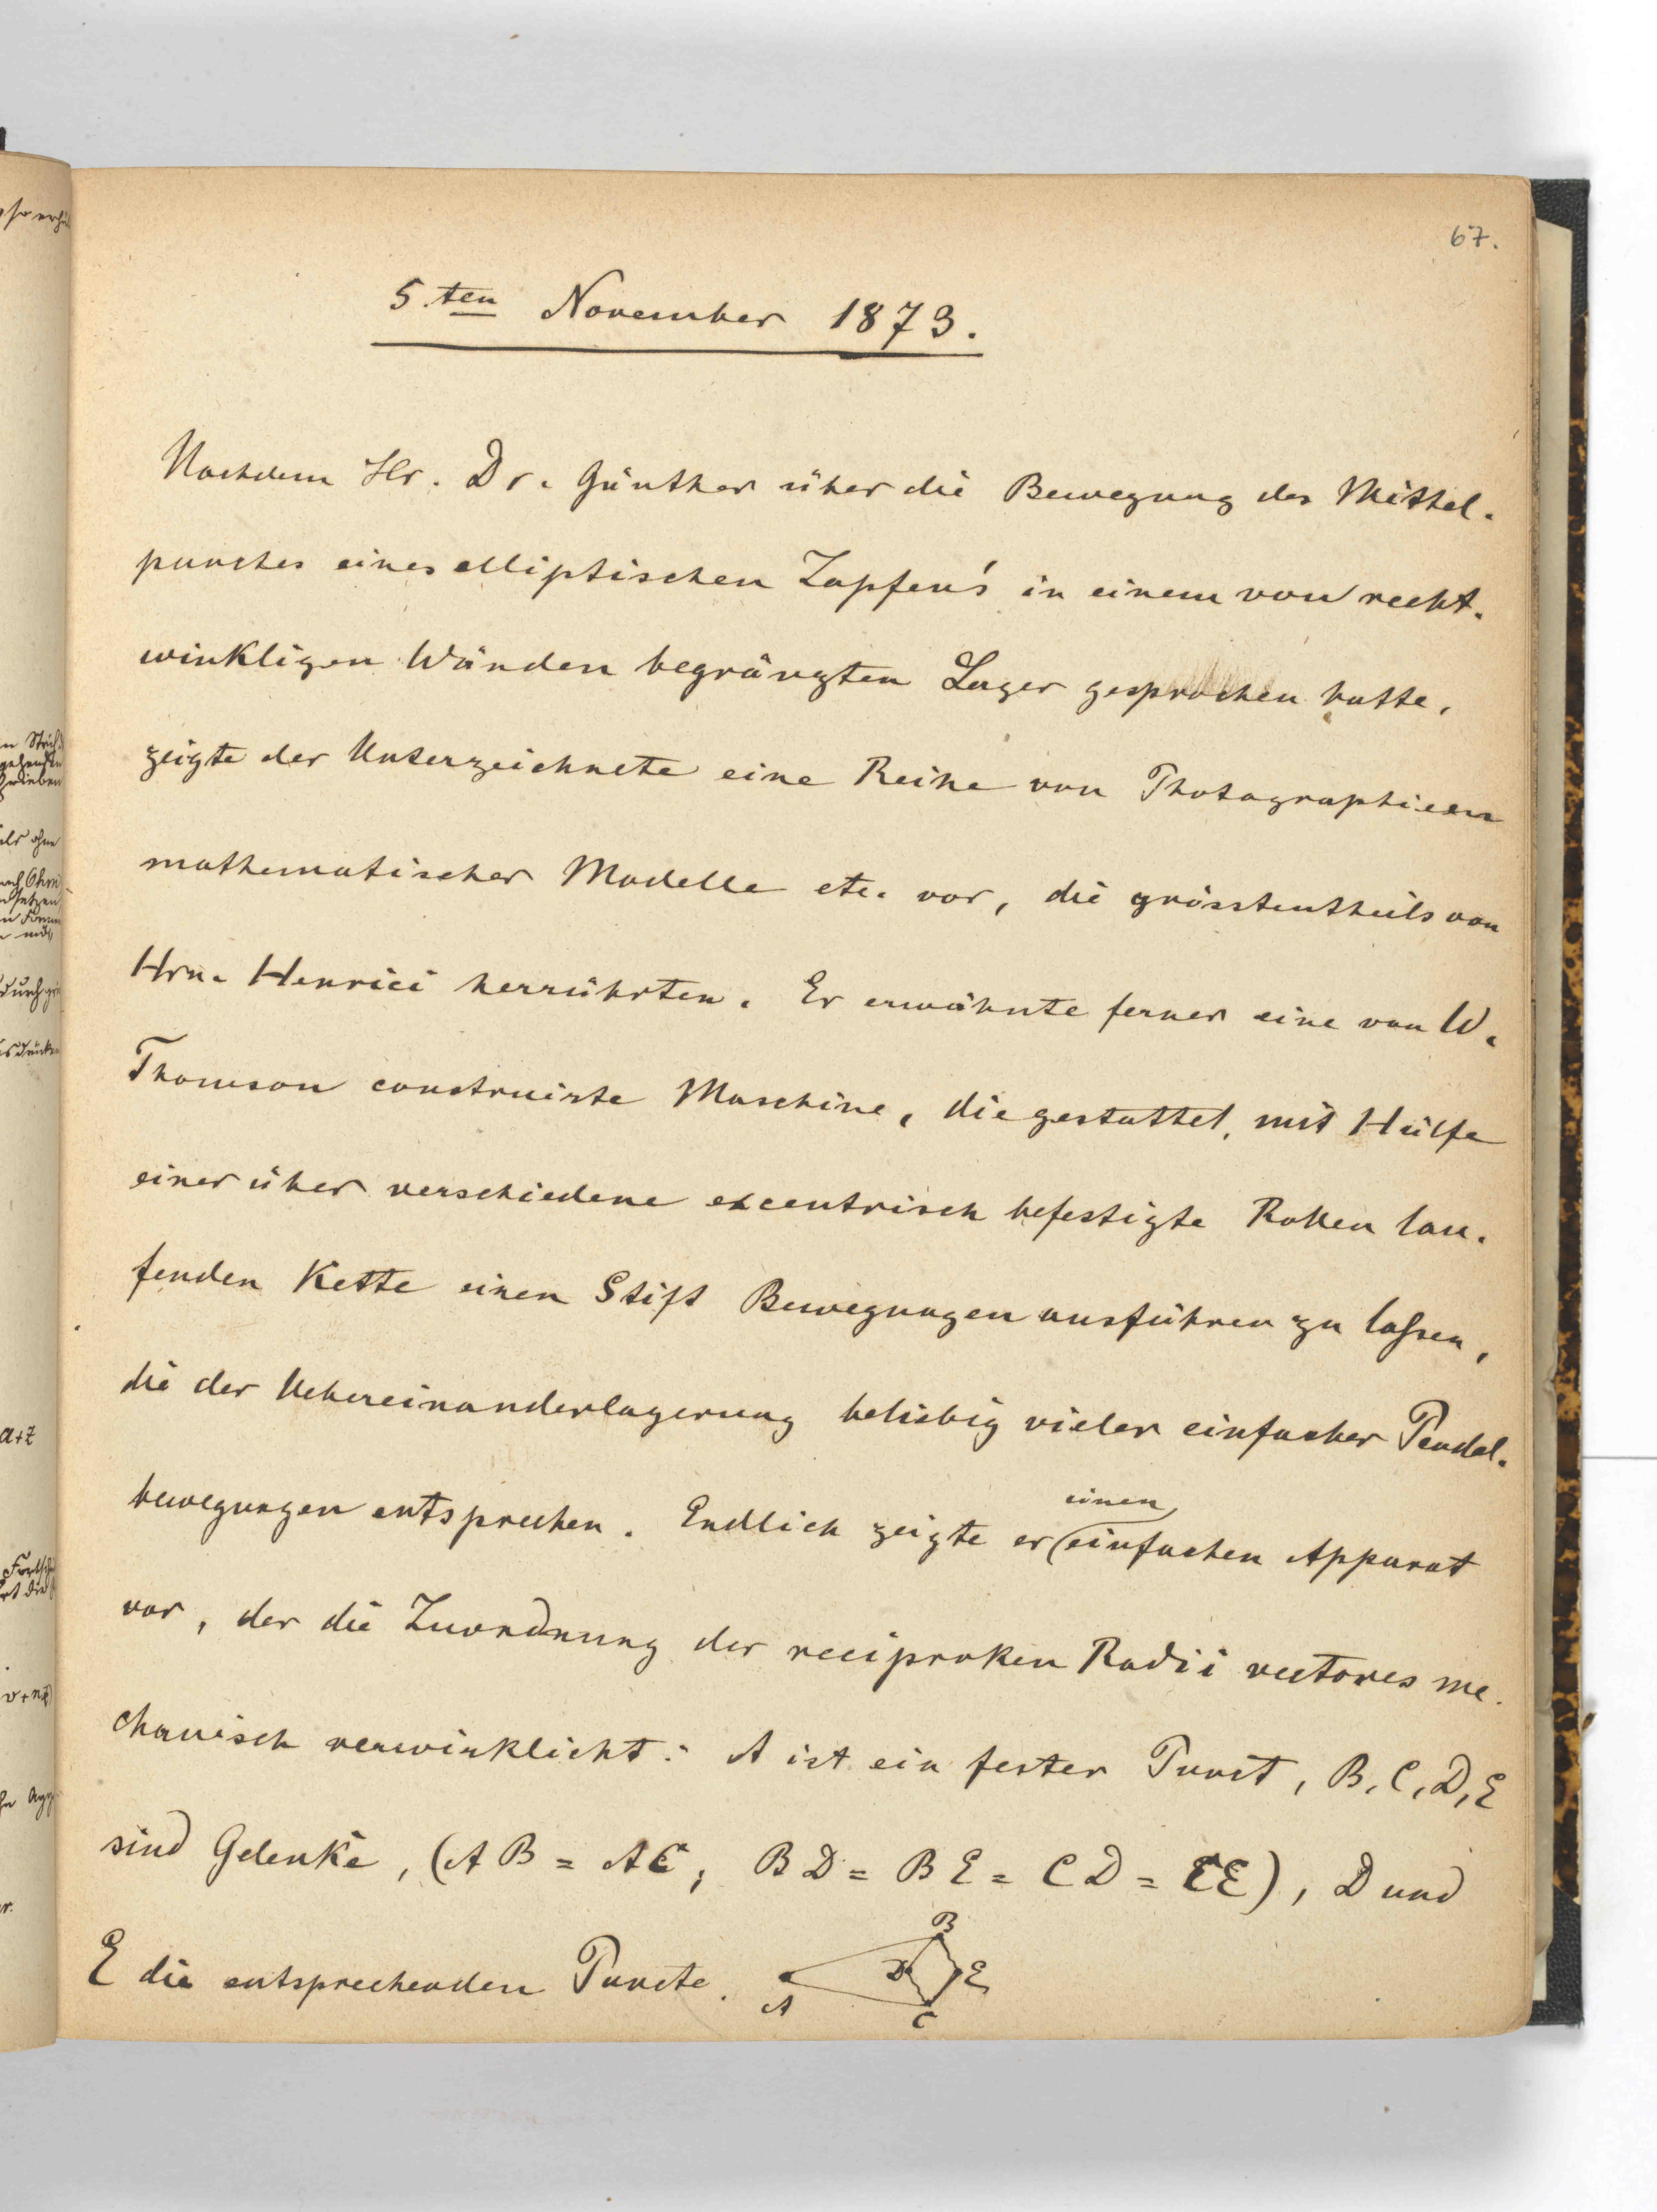 67.
5.ten November 1873.
Nachdem Hr. Dr. Günther über die Bewegung des Mittel-
punctes eines elliptischen Zapfen's in einem von recht-
winkligen Wänden begränzten Lager gesprochen hatte,
zeigte der Unterzeichnete eine Reihe von Photographieen
mathematischer Modelle etc. vor, die grösstentheils von
Hrn. Henrici herrührten. Er erwähnte ferner eine von W.
Thomson construirte Maschine, die gestattet, mit Hülfe
einer über verschiedene excentrisch befestigte Rollen lau-
fenden Kette einen Stift Bewegungen ausführen zu lassen,
die der Uebereinanderlagerung beliebig vieler einfacher Pendel-
bewegungen entsprechen. Endlich zeigte er einen einfachen Apparat
vor, der die Zuordnung der reciproken Radii vectores me-
chanisch verwirklicht: A ist ein fester Punct, B, C, D, E
sind Gelenke, (AB = AC, BD = BE = CD = CE), D und
E die entsprechenden Puncte.
B
D
E
A
C
a+z